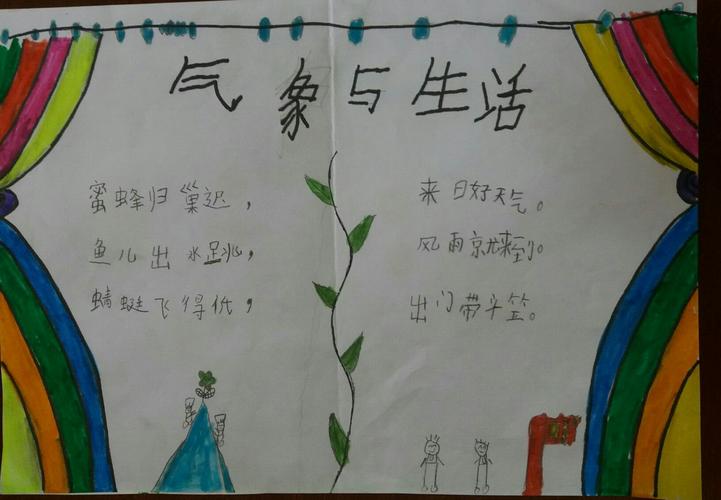 气象与生活
蜜蜂归巢迟，
来日好天气。
鱼儿出水跳，
风雨就来到。
蜻蜓飞得低，
出门带斗笠。